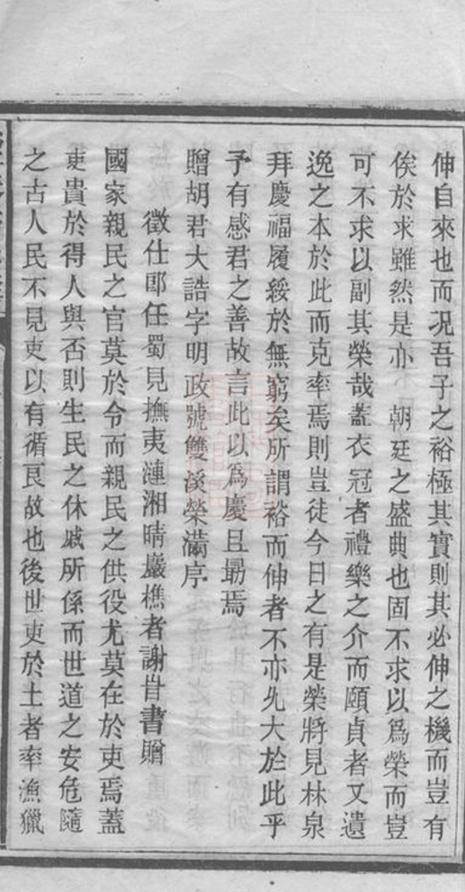 伸自來也而況吾子之裕極其實則其必伸之機而豈有
俟於求雖然是亦　朝廷之盛典也固不求以爲榮而豈
可不求以副其榮哉蓋衣冠者禮樂之介而頤貞者又遺
逸之本於此而克率焉則豈徒今日之有是榮將見林泉
拜慶福履綏於無窮矣所謂裕而伸者不亦尤大於此乎
予有感君之善故言此以爲慶且勗焉
贈胡君大誥字明政號雙溪榮滿序
徵仕郎任蜀見撫夷漣湘晴巖樵者謝㫖書贈
國家親民之官莫於令而親民之供役尤莫在於吏焉蓋
吏貴於得人與否則生民之休戚所係而世道之安危隨
之古人民不見吏以有循良故也後世吏於土者率漁獵